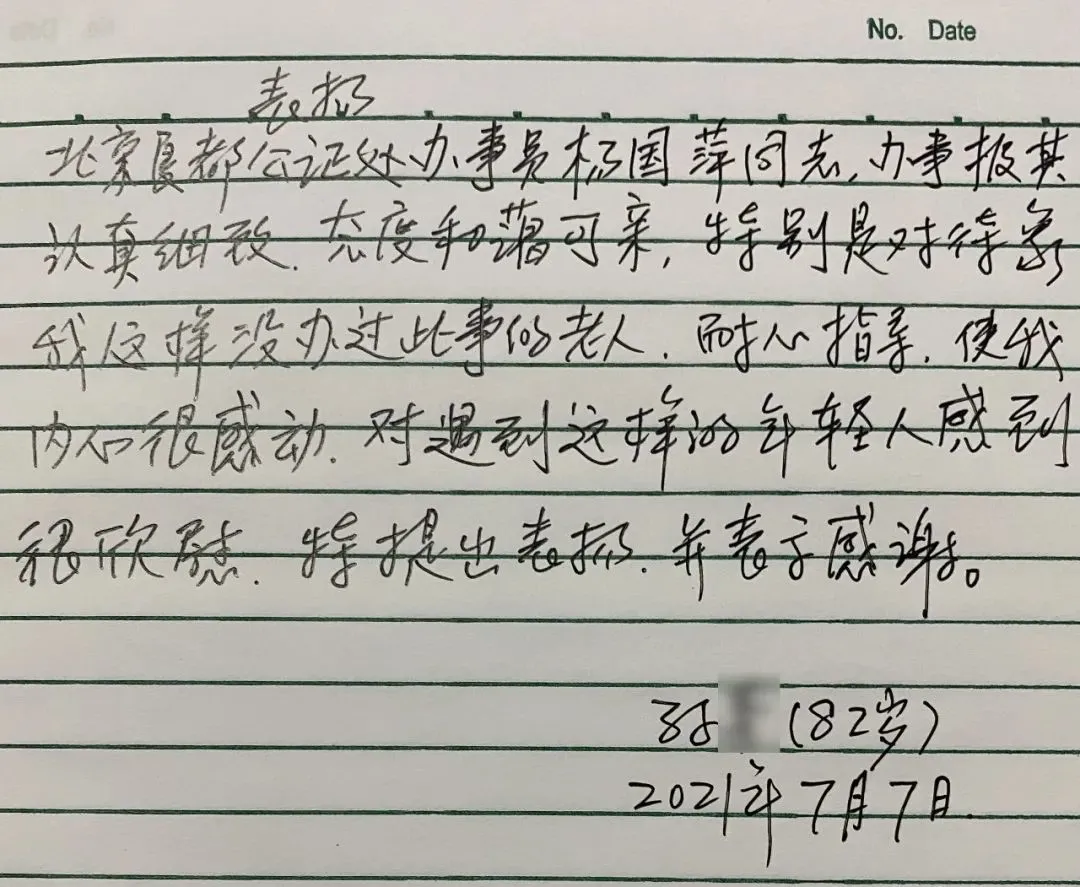 No. Date
表扬
北京夏都公证处办事员杨国萍同志,办事极其
认真细致.态度和蔼可亲,特别是对待象
我这样没办过此事的老人.耐心指导.使我
内心很感动.对遇到这样的年轻人感到
很欣慰.特提出表扬.并表示感谢。
孙 (82岁)
2021年7月7日.